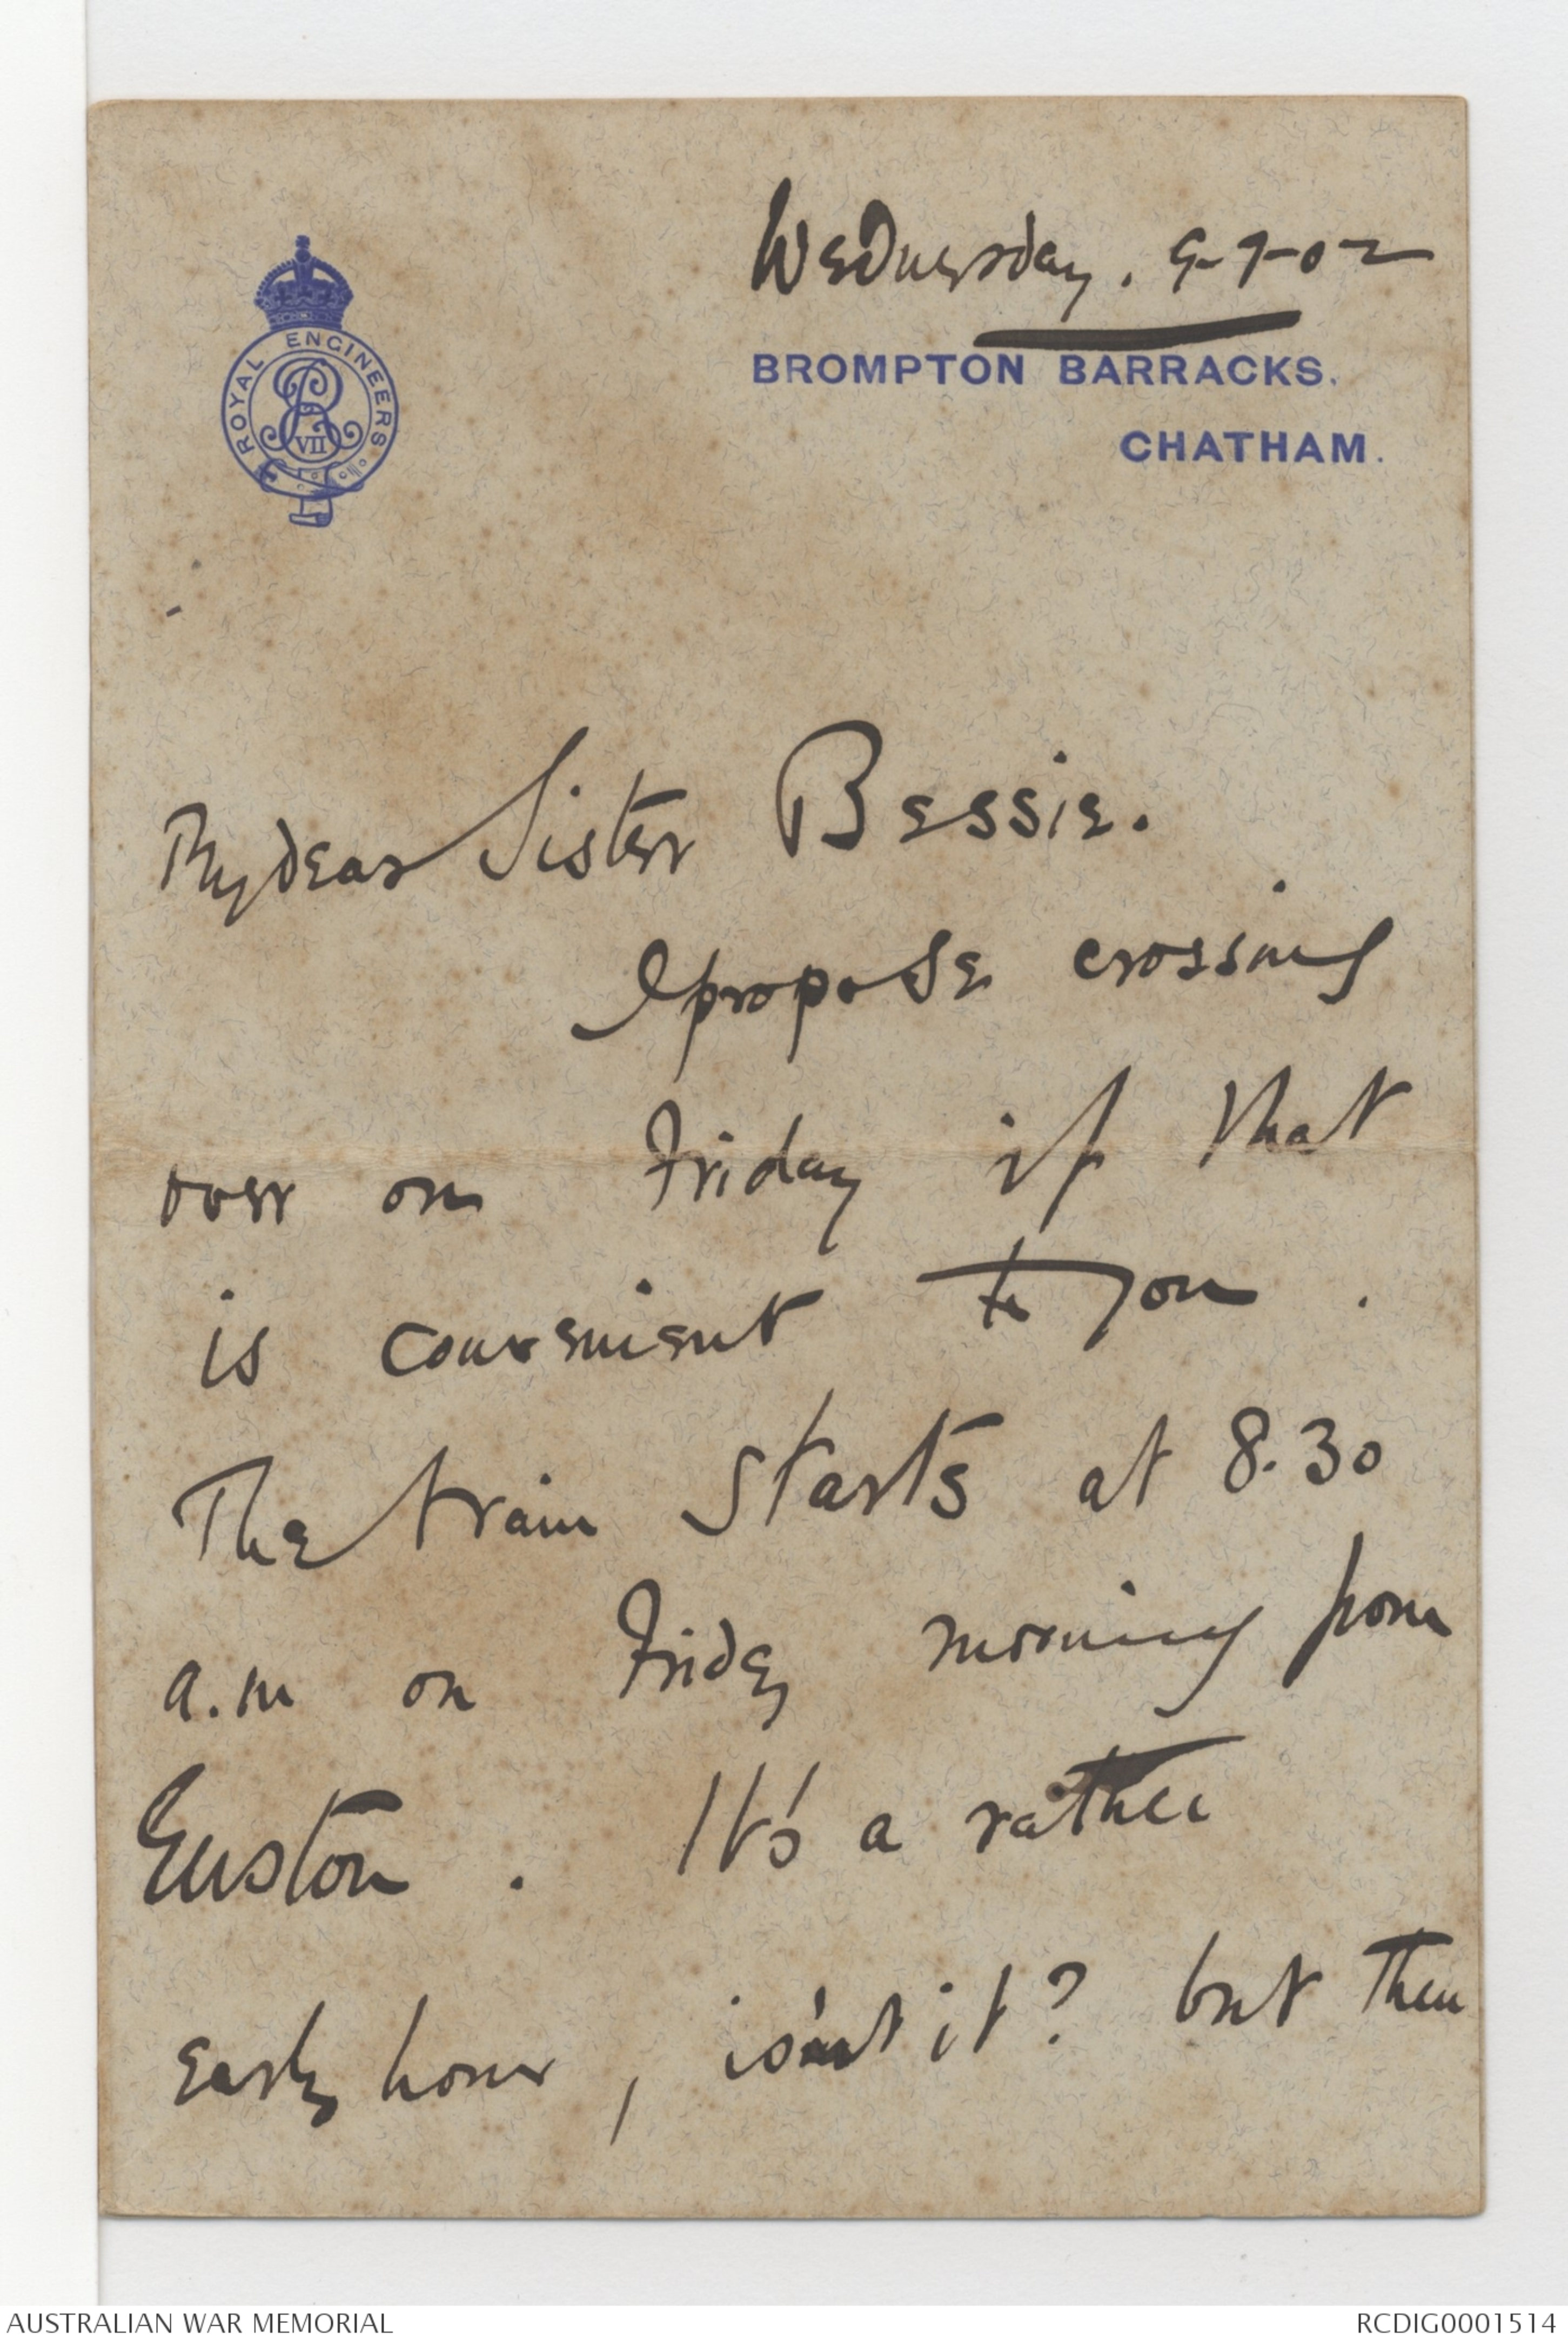 Wednesday. 9-7-02
BROMPTON BARRACKS.
CHATHAM.
ROYAL ENGINEERS
VII
My dear Sister Bessie.
I propose crossing
over on Friday if that
is convenient to you.
The train starts at 8.30
a.m on Friday morning from
Euston. It's a rather
early hour, is'nt it? but then
AUSTRALIAN WAR MEMORIAL
RCDIG0001514